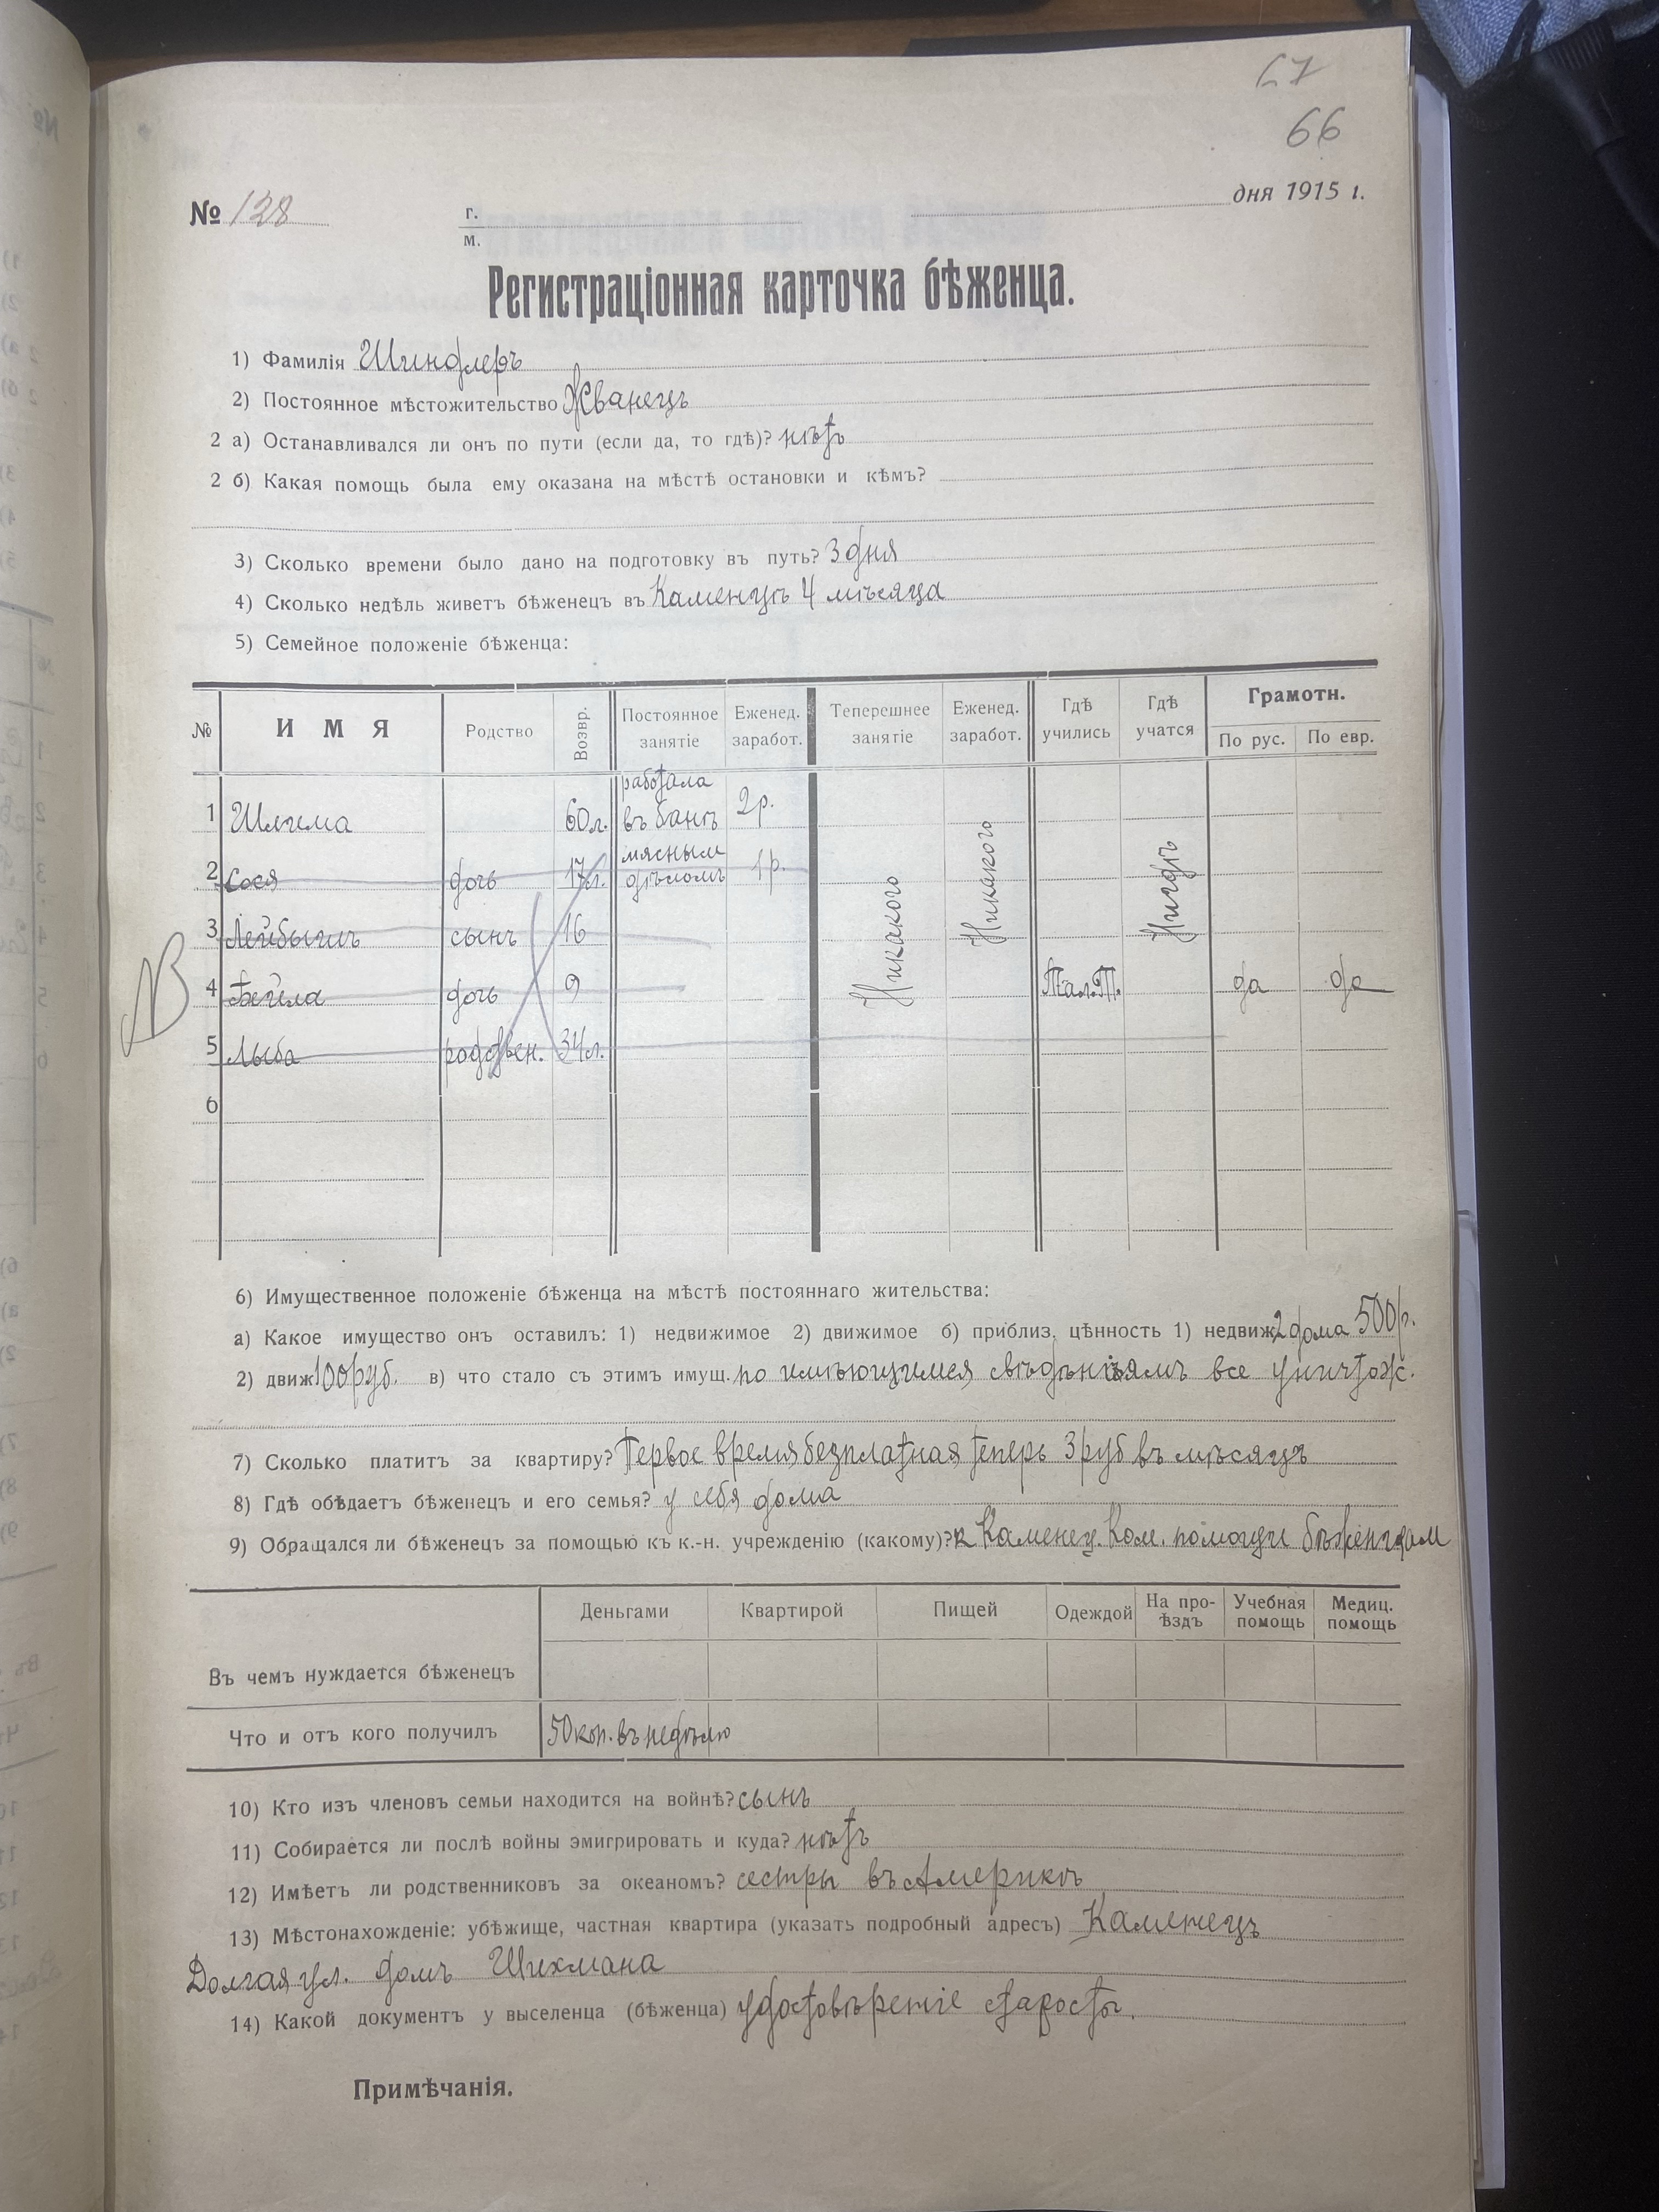 67
66
№ 128 г. м. дня 1915 г.
Регистраціонная карточка бѣженца.
1) Фамилія Шиндлеръ
2) Постоянное мѣстожительство Жванецъ
2 а) Останавливался ли онъ по пути (если да, то гдѣ)? нѣтъ
2 б) Какая помощь была ему оказана на мѣстѣ остановки и кѣмъ?
3) Сколько времени было дано на подготовку въ путь? 3 дня
4) Сколько недѣль живетъ бѣженецъ въ Каменцѣ 4 мѣсяца
5) Семейное положеніе бѣженца:
№ ИМЯ Родство Возвр. Постоянное занятіе Еженед. заработ. Теперешнее занятіе Еженед. заработ. Гдѣ учились Гдѣ учатся Грамотн. По рус. По евр.
1 60л. работала въ банѣ 2р.
2 Сося дочь 17л. мяснымъ дѣломъ 1р.
3 сынъ 16
4 Бейла дочь 9 Тал.Т. да да
5 Лыба родствен. 34л.
6
Никакого Никакого Нигдѣ
NB
6) Имущественное положеніе бѣженца на мѣстѣ постояннаго жительства:
а) Какое имущество онъ оставилъ: 1) недвижимое 2) движимое б) приблиз. цѣнность 1) недвиж. 2 дома 500р.
2) движ. 100руб. в) что стало съ этимъ имущ. по имѣющимся свѣдѣніямъ все уничтож.
7) Сколько платитъ за квартиру? Первое время безплатная теперь 3 руб въ мѣсяцъ
8) Гдѣ обѣдаетъ бѣженец и его семья? у себя дома
9) Обращался ли бѣженецъ за помощью къ к.-н. учрежденію (какому)? к Каменец. Ком. помощи бѣженцам
Деньгами Квартирой Пищей Одеждой На проѣздъ Учебная помощь Медиц. помощь
Въ чемъ нуждается бѣженецъ
Что и отъ кого получилъ 50 коп. въ недѣлю
10) Кто изъ членовъ семьи находится на войнѣ? сынъ
11) Собирается ли послѣ войны эмигрировать и куда? нѣтъ
12) Имѣетъ ли родственниковъ за океаномъ? сестры въ Америкѣ
13) Мѣстонахожденіе: убѣжище, частная квартира (указать подробный адресъ) Каменецъ
Долгая ул. домъ Шихмана
14) Какой документъ у выселенца (бѣженца) удостовѣреніе старосты.
Примѣчанія.